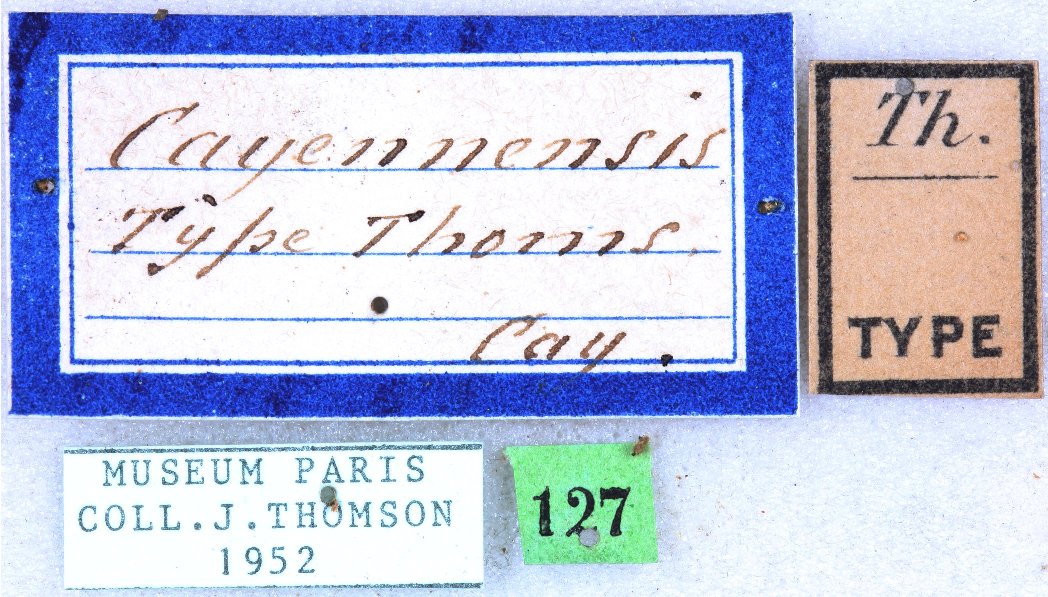 Cayennensis
Type Thoms.
Cay.
Th.
TYPE
MUSEUM PARIS
COLL.J.THOMSON
1952
127